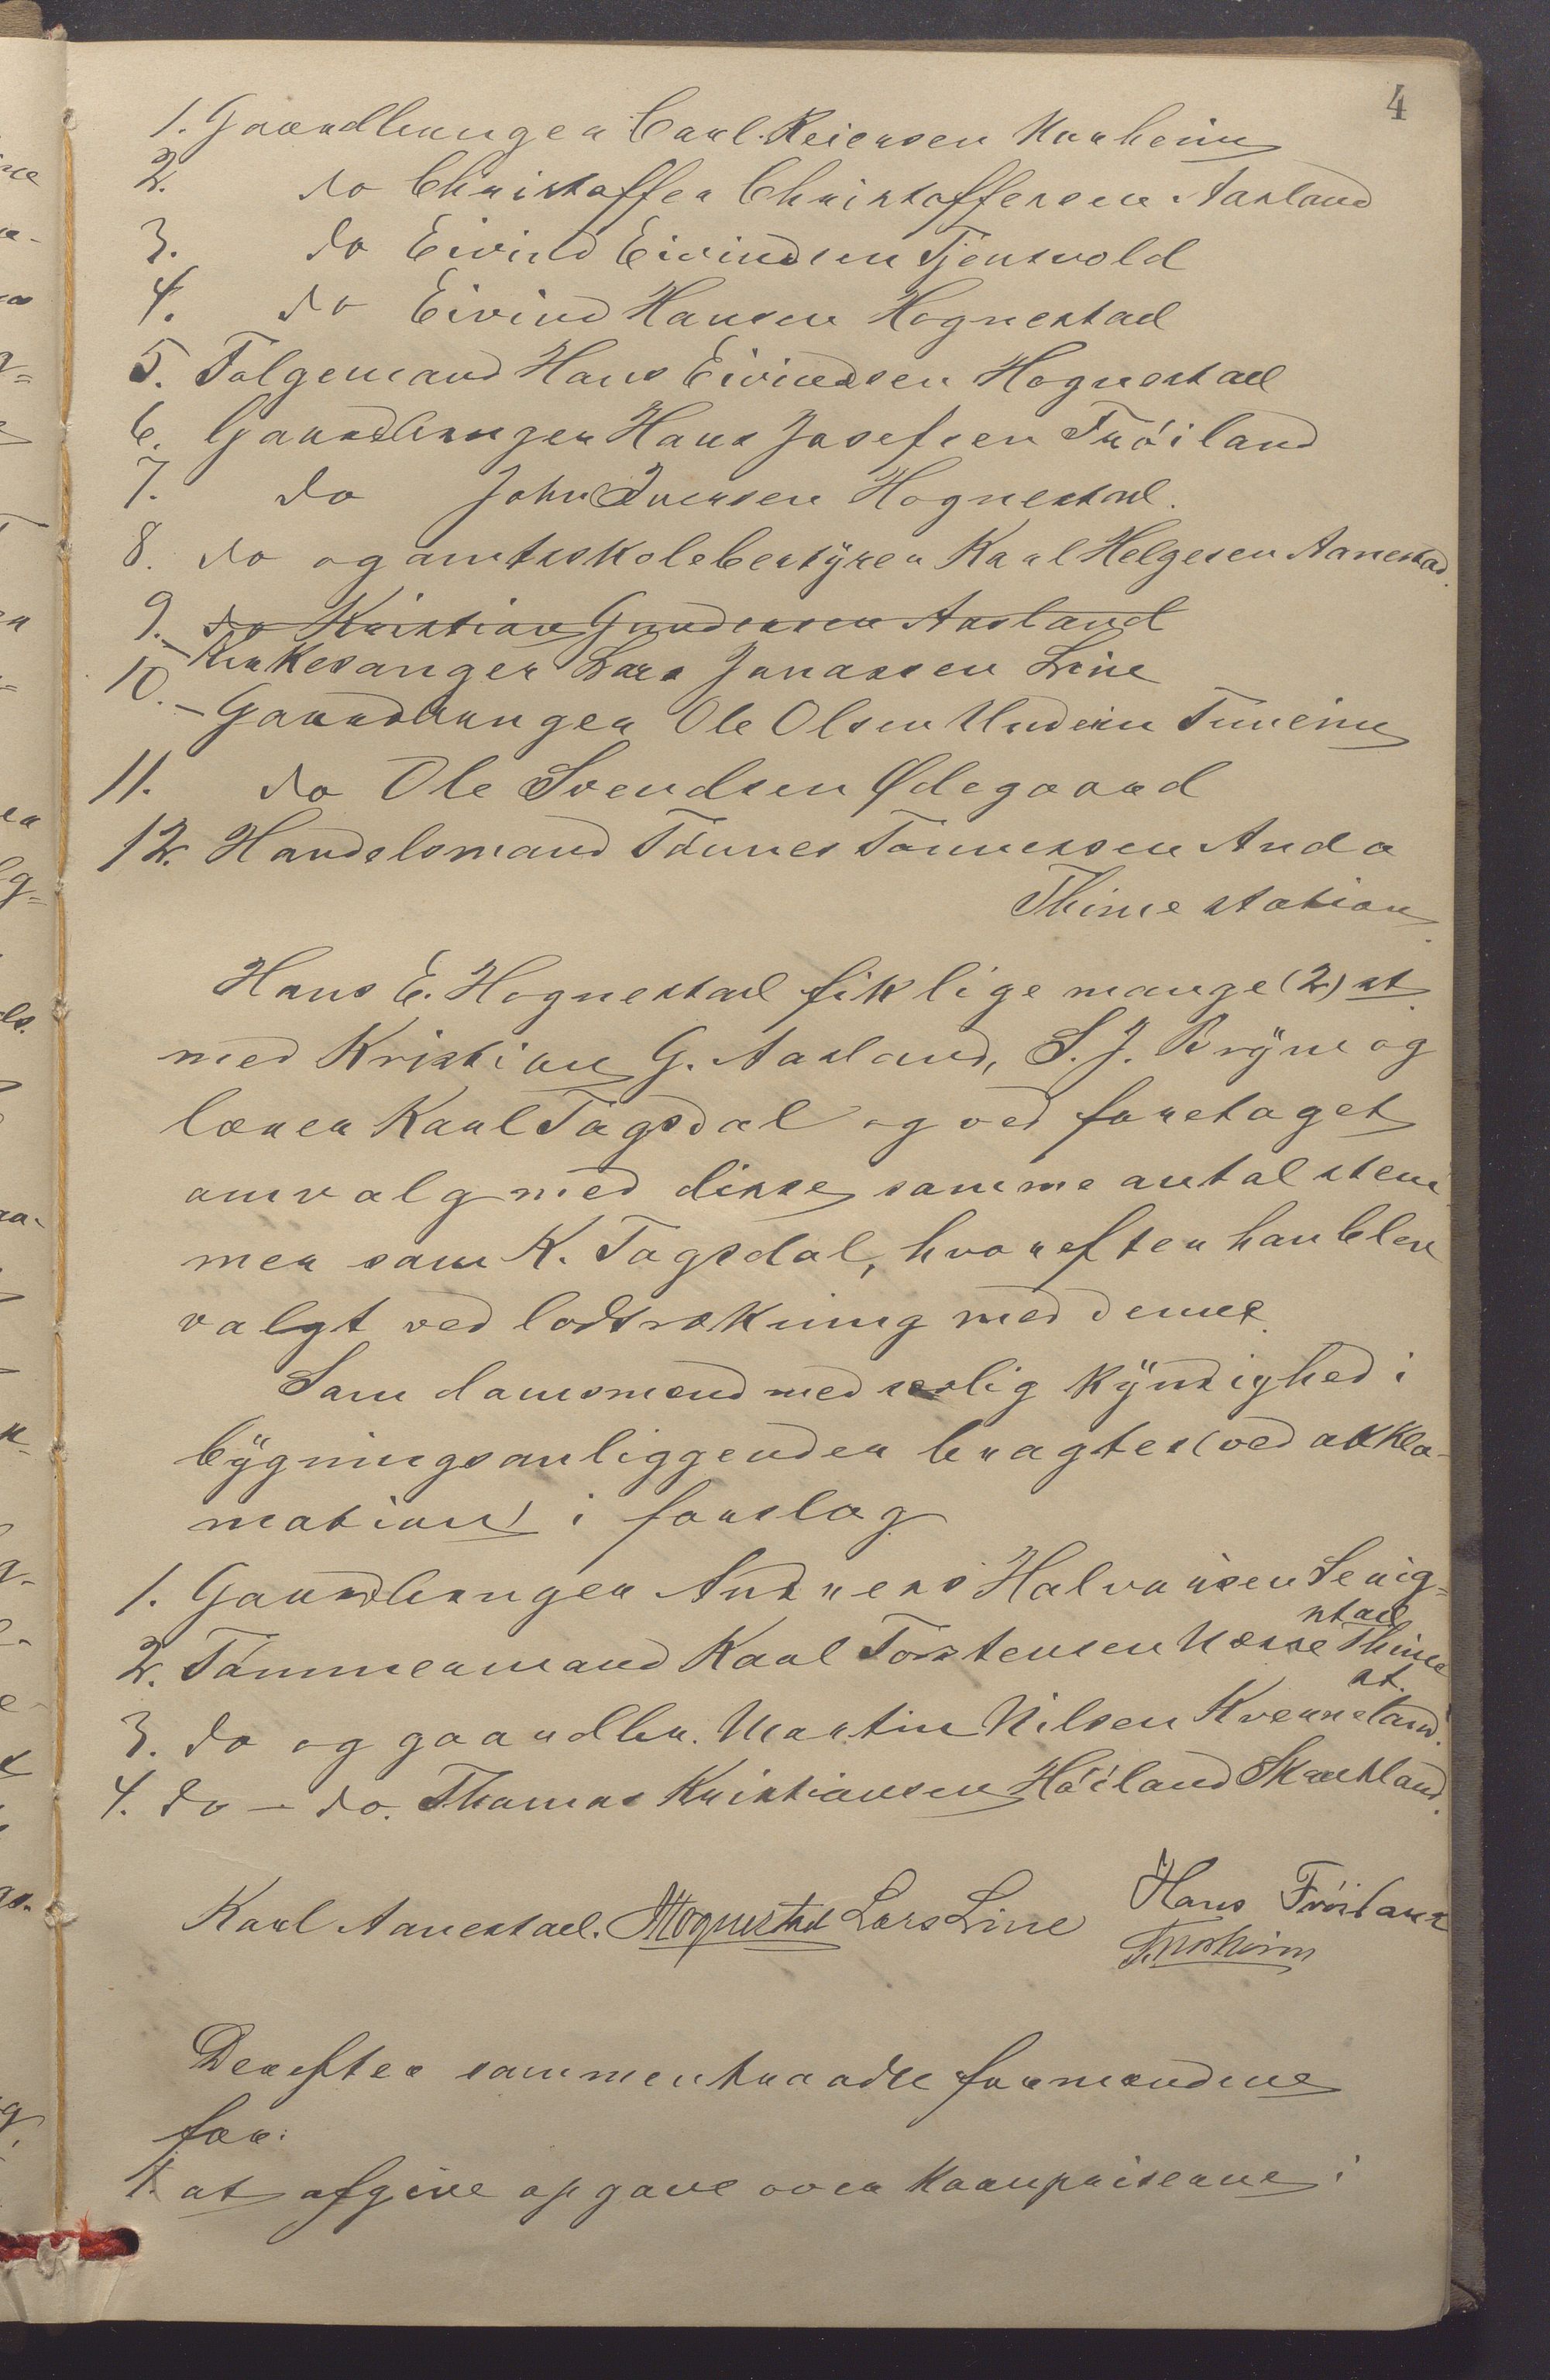 4
1. Gaardbruger Carl Reiersen Norheim
2. do Christoffer Christoffersen Aasland
3. do Eivind Eivindsen Tjensvold
4. do Eivind Hansen Hognestad
5. Folgemand Hans Eivindsen Hognestad
6. Gaardbruger Hans Josefsen Fröiland
7. do John Iversen Hognestad.
8. do og amtsskolebestÿrer Karl Helgesen Aanestad.
9. do Kristian Gundersen Aasland
Kirkesanger Lars Jonassen Line
10. - Gaardbruger Ole Olsen Undeim Tuneim
11. do Ole Svendsen Ødegaard
12. Handelsmand Tönnes Tönnessen Anda
Thime station.
Hans E. Hognestad fik lige mange (2) st.
med Kristian G. Aasland, S. J. Brÿne og
lærer Karl Tægsdal og ved foretaget
omvalg med disse samme antal stem
mer som K. Tægsdal, hvorefter han blev
valgt ved lodtrækning med denne.
Som domsmænd med særlig kÿndighed i
bÿgningsanliggender bragtes (ved akkla-
mation) i forslag
1. Gaardbruger Andreas Halvorsen Serig=
stad
2. Tömmermand Karl Torstensen Næsse Thime
st.
3. do og gaardbr. Martin Nilsen Kverneland.
4. do - do. Thomas Kristiansen Höiland Skautland.
Karl Aanestad. Hognestad Lars Line Hans Fröiland
Norheim
Derefter sammentraadte formændene
for:
1. at afgive opgave over kornpriserne i